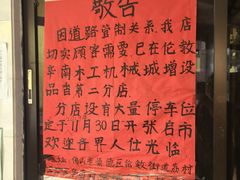 敬告
因道路管制关系,我店
切实顾客需要已在伦教
华南木工机械城增设
品自第二分店.
分店设有大量停车位
定于11月30日开张启市
欢迎各界人仕光临
顺德区伦教街道荔村